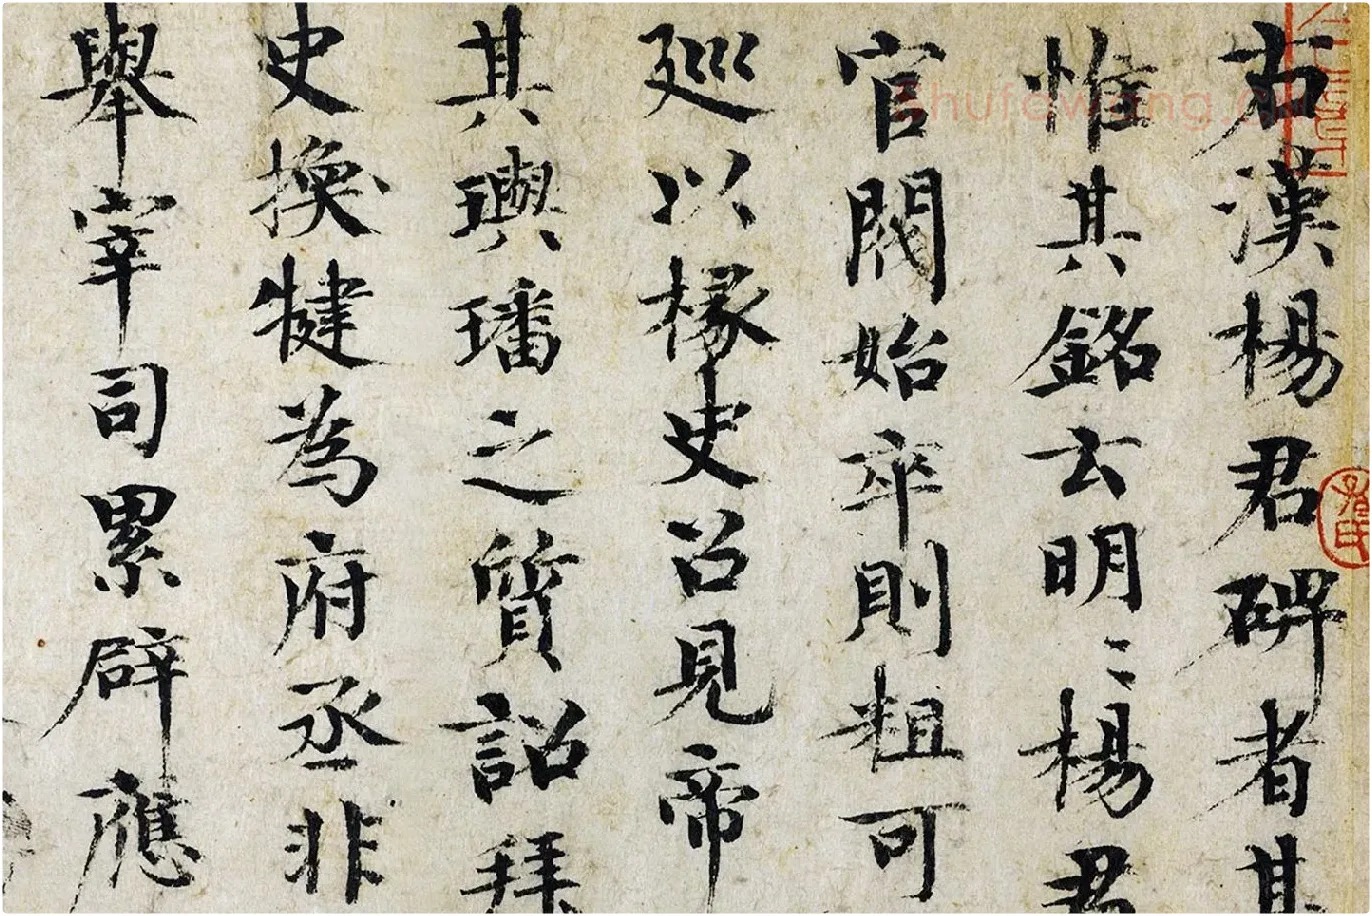 右漢楊君碑者其
惟其銘玄明〻楊君
官閥始卒則粗可
廵以掾史召見帝
其璵璠之質詔拜
史換犍為府丞非
舉宰司累辟應
shufawang.cn